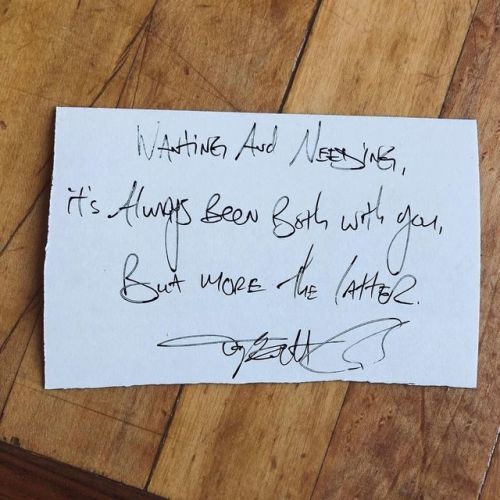 Wanting And Needing,
it's Always Been Both with you,
But more the latter.